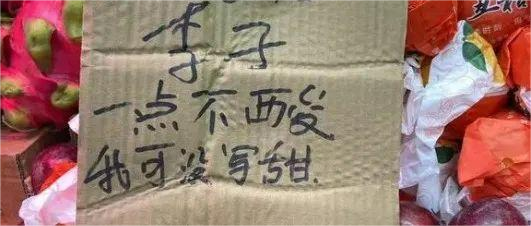 李子
一点不酸
我可没写甜